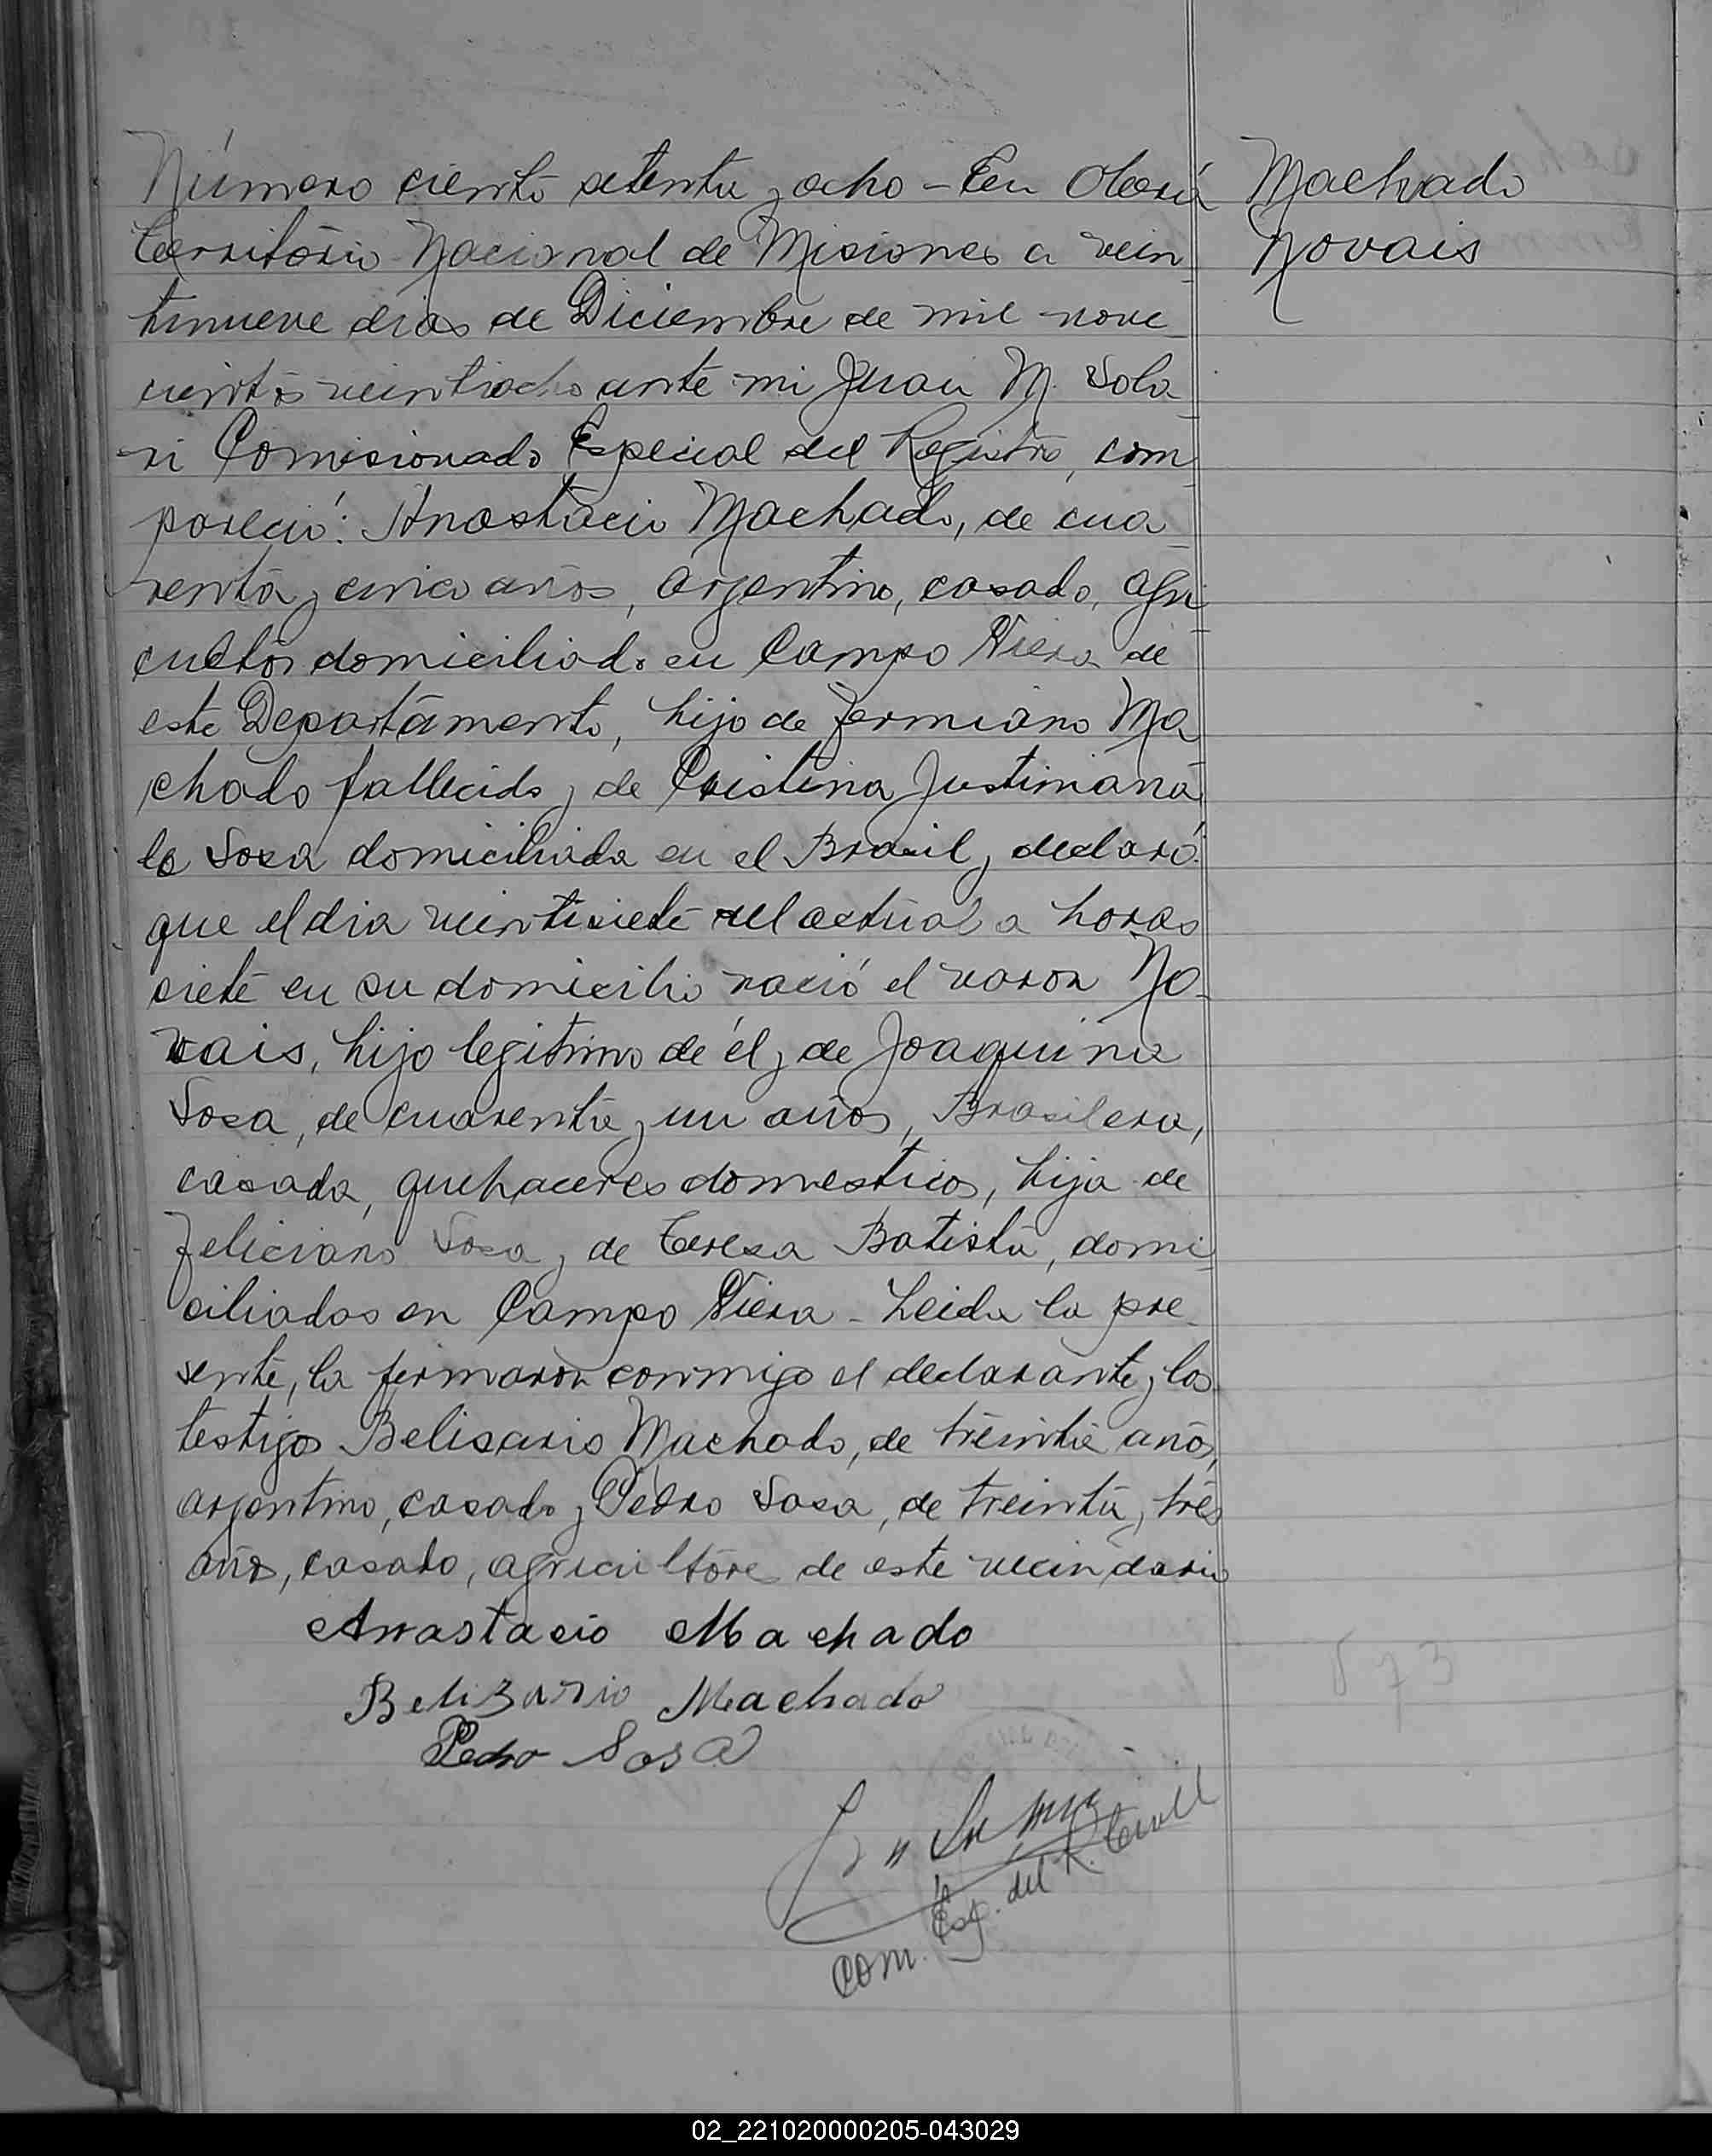 Número ciento setenta y ocho - En Oberá
Territorio Nacional de Misiones a vein
tinueve dias de Diciembre de mil nove
cientos veintiocho ante mi Juan M. Sola
ri Comisionado Especial del Registro, com
pareció: Anastacio Machado, de cua
renta y cinco años, argentino, casado, agri
cultor domiciliado en Campo Viera de
este Departamento, hijo de Fermiano Ma
chado fallecido y de Cristina Justiniana
la Sosa domiciliada en el Brasil y declaró:
que el dia veintisiete del actual a horas
siete en su domicilio nació el varon No
vais, hijo legitimo de él y de Joaquina
Sosa, de cuarenta y un años, Brasilera,
casada, quehaceres domesticos, hija de
Feliciano Sosa y de Teresa Batista, domi
ciliados en Campo Viera - Leida la pre
sente, la firmaron conmigo el declarante y los
testigos Belisario Machado, de treinta años,
argentino, casado y Pedro Sosa, de treinta y tres
años, casado, agricultores de este vecindario
Anastacio Machado
Belizario Machado
Pedro Sosa
Com. Esp. del R. Civil
Machado
Novais
573
02_221020000205-043029